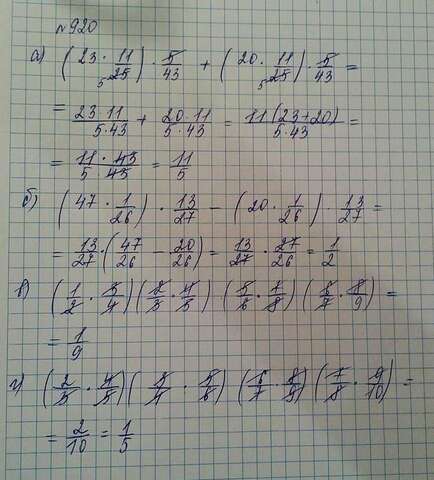 №920
а) (23 · 11/25) · 5/43 + (20 · 11/25) · 5/43 =
= 23·11/5·43 + 20·11/5·43 = 11(23+20)/5·43 =
= 11·43/5·43 = 11/5
б) (47 · 1/26) · 13/27 − (20 · 1/26) · 13/27 =
= 13/27 · (47/26 − 20/26) = 13/27 · 27/26 = 1/2
в) (1/2 · 3/4)(2/3 · 4/5) (5/6 · 7/8)(6/7 · 8/9) =
= 1/9
г) (2/3 · 4/5)(3/4 · 5/6) (6/7 · 8/9)(7/8 · 9/10) =
= 2/10 = 1/5